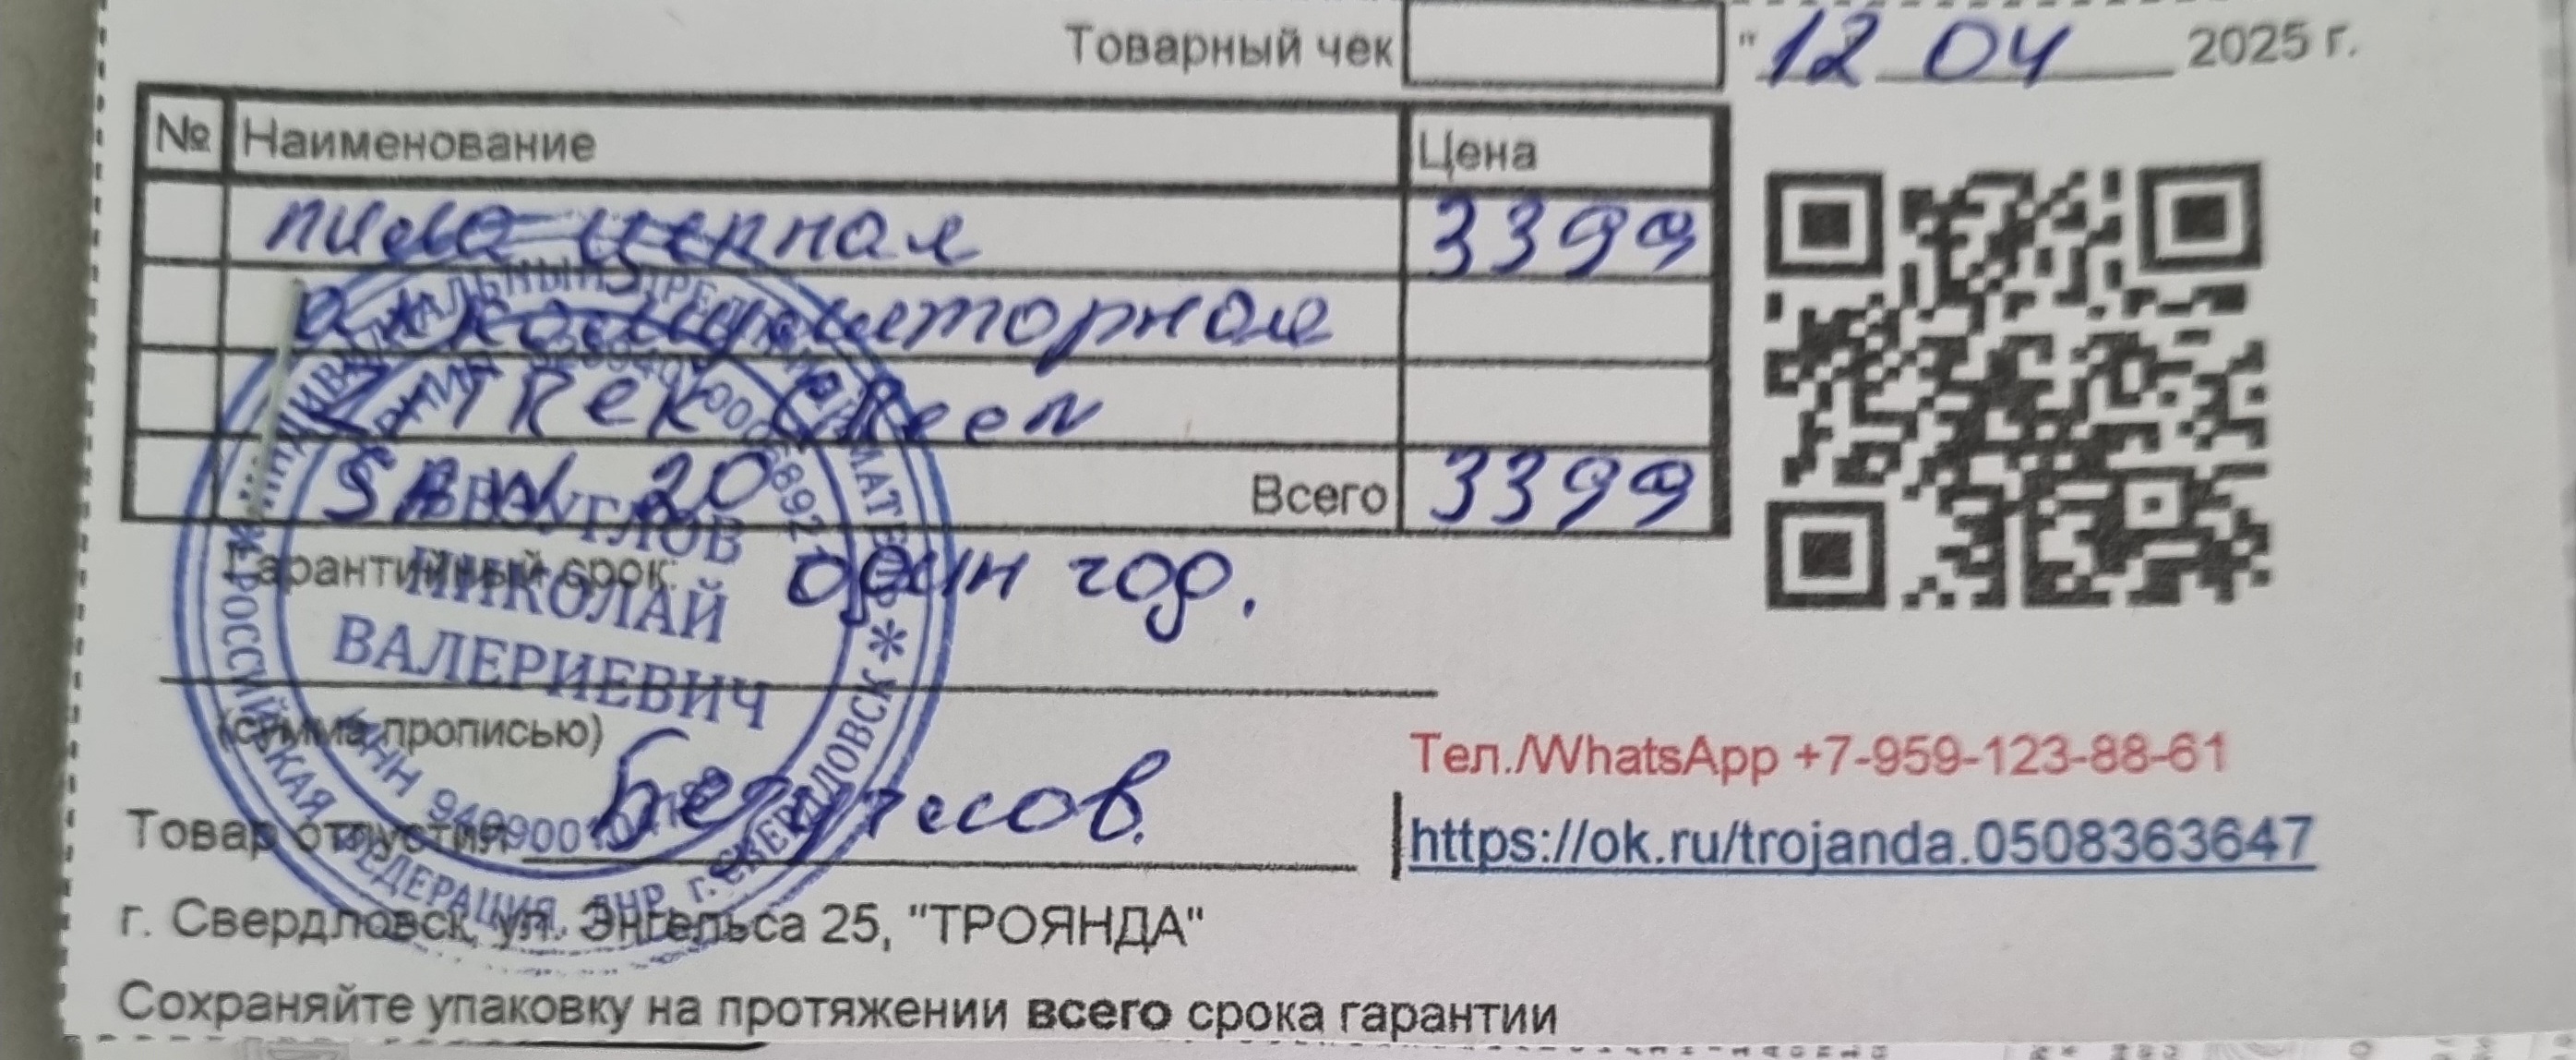 Товарный чек "12 04 2025 г.
№ Наименование Цена
пила цепная 3399
аккамуляторная
Zitrek Green
Saw 20 Всего 3399
Гарантийный срок: один год.
(сумма прописью)
Товар отпустил Безуглов.
г. Свердловск, ул. Энгельса 25, "ТРОЯНДА"
Сохраняйте упаковку на протяжении всего срока гарантии
Тел./WhatsApp +7-959-123-88-61
https://ok.ru/trojanda.0508363647
БЕЗУГЛОВ
НИКОЛАЙ
ВАЛЕРИЕВИЧ
РОССИЙСКАЯ ФЕДЕРАЦИЯ, ЛНР, г. СВЕРДЛОВСК
ИНДИВИДУАЛЬНЫЙ ПРЕДПРИНИМАТЕЛЬ
ИНН